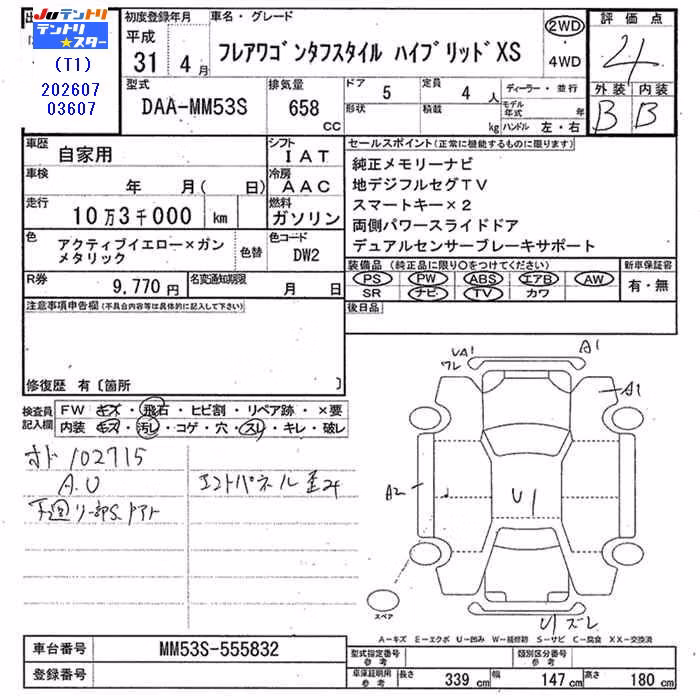 Juテントリ
テントリ
★スター
(T1)
202607
03607
初度登録年月
平成
31 4 月
車名・グレード
フレアワゴンタフスタイル ハイブリッド XS
2WD
・
4WD
評価点
4
外装 内装
B B
型式
DAA-MM53S
排気量
658
CC
ドア
5
定員
4 人
形状
積載
kg
ディーラー・並行
モデル年式 年
ハンドル 左・右
車歴
自家用
シフト
IAT
車検
年 月( 日)
冷房
AAC
走行
10万3千000 km
燃料
ガソリン
色
アクティブイエロー×ガン
メタリック
色替
色コード
DW2
R券
9,770 円
名変通知期限
月 日
セールスポイント(正常に機能するものに限ります)
純正メモリーナビ
地デジフルセグTV
スマートキー×2
両側パワースライドドア
デュアルセンサーブレーキサポート
装備品(純正品に限り○をつけてください)
PS PW ABS エアB AW
SR ナビ TV カワ
新車保証書
有・無
注意事項申告欄(不具合内容等は具体的に記入して下さい)
後日品
修復歴 有〔箇所 〕
検査員
記入欄
FW キズ・飛石・ヒビ割・リペア跡・×要
内装・キズ・汚レ・コゲ・穴・スレ・キレ・破レ
オド 102715
A.U
エンドパネル歪み
UA1
ワレ
A1
A1
A2
U1
U1ズレ
スペア
A−キズ E−エクボ U−凹み W−補修跡 S−サビ C−腐食 XX−交換済
車台番号
MM53S-555832
登録番号
型式指定番号
参考
類別区分番号
参考
車庫証明用
参考
長さ 339 cm
幅 147 cm
高さ 180 cm